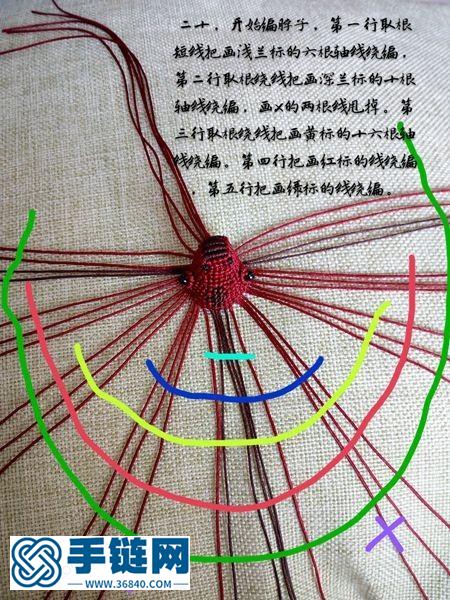 二十，开始编脖子，第一行取根
短线把画浅兰标的六根轴线绕编，
第二行取根绕线把画深兰标的十根
轴线绕编，画x的两根线甩掉。第
三行取根绕线把画黄标的十六根轴
线绕编。第四行把画红标的线绕编
，第五行把画绿标的线绕编。
手链网
WWW.36840.COM